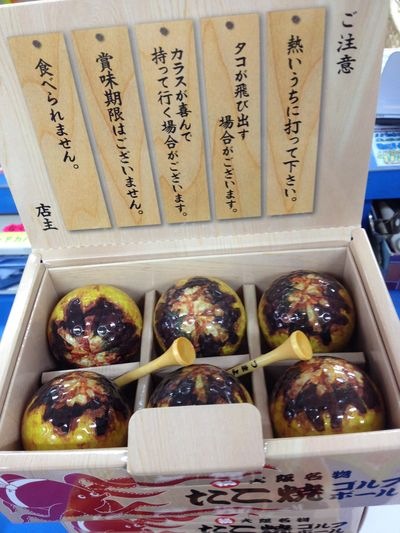 ご注意
熱いうちに打って下さい。
タコが飛び出す
場合がございます。
カラスが喜んで
持って行く場合がございます。
賞味期限はございません。
食べられません。
店主
大阪名物
たこ焼
ゴルフ
ボール
大阪名物
たこ焼
ゴルフ
ボール